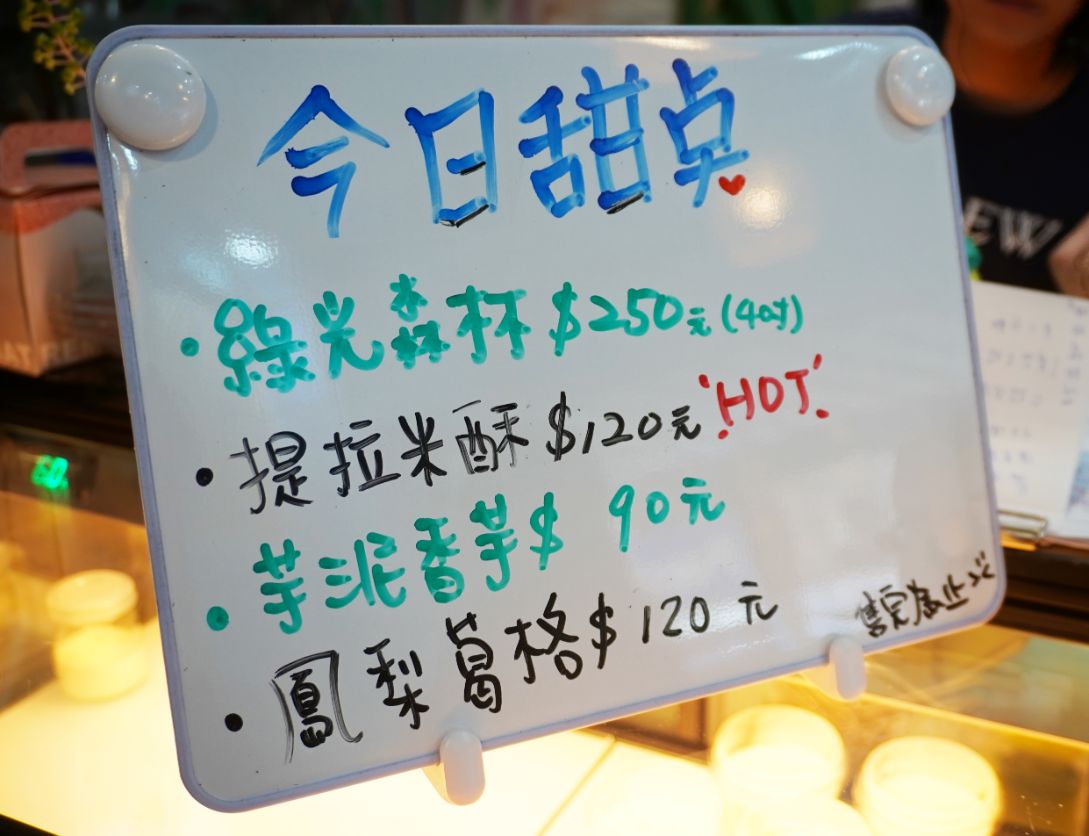 今日甜点
・綠光森林 $250元(4吋)
・提拉米酥 $120元 'HOT'
・芋泥香芋$ 90元
・鳳梨蔓格$ 120元
售完為止
EW
60